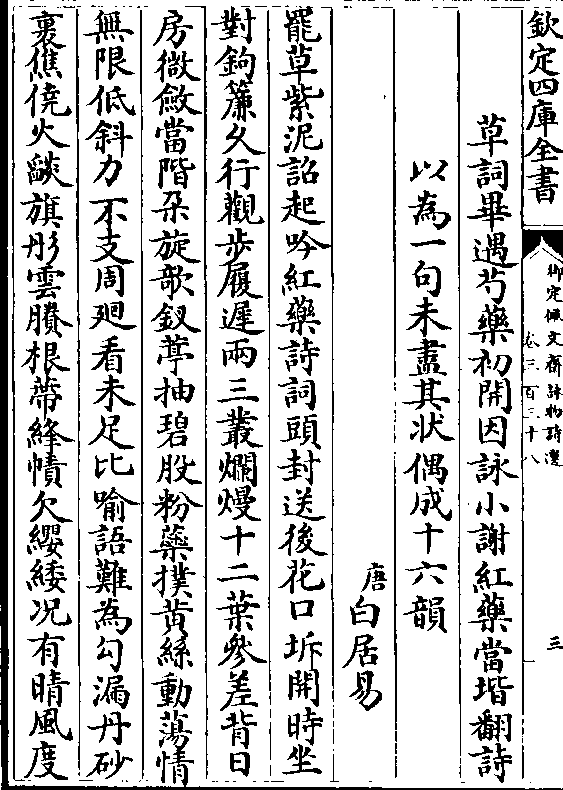 欽定四庫全書
御定佩文齋詠物詩選
卷三百三十八
三
草詞畢遇芍藥初開因詠小謝紅藥當堦翻詩
以為一句未盡其狀偶成十六韻
唐白居易
罷草紫泥詔起吟紅藥詩詞頭封送後花口坼開時坐
對鉤簾久行觀步履遲兩三叢爛熳十二葉參差背日
房微斂當階朶旋欹釵葶抽碧股粉蘂撲黄絲動蕩情
無限低斜力不支周廻看未足比喻語難為勾漏丹砂
裏僬僥火燄旗彤雲賸根蔕絳幘欠纓緌况有晴風度